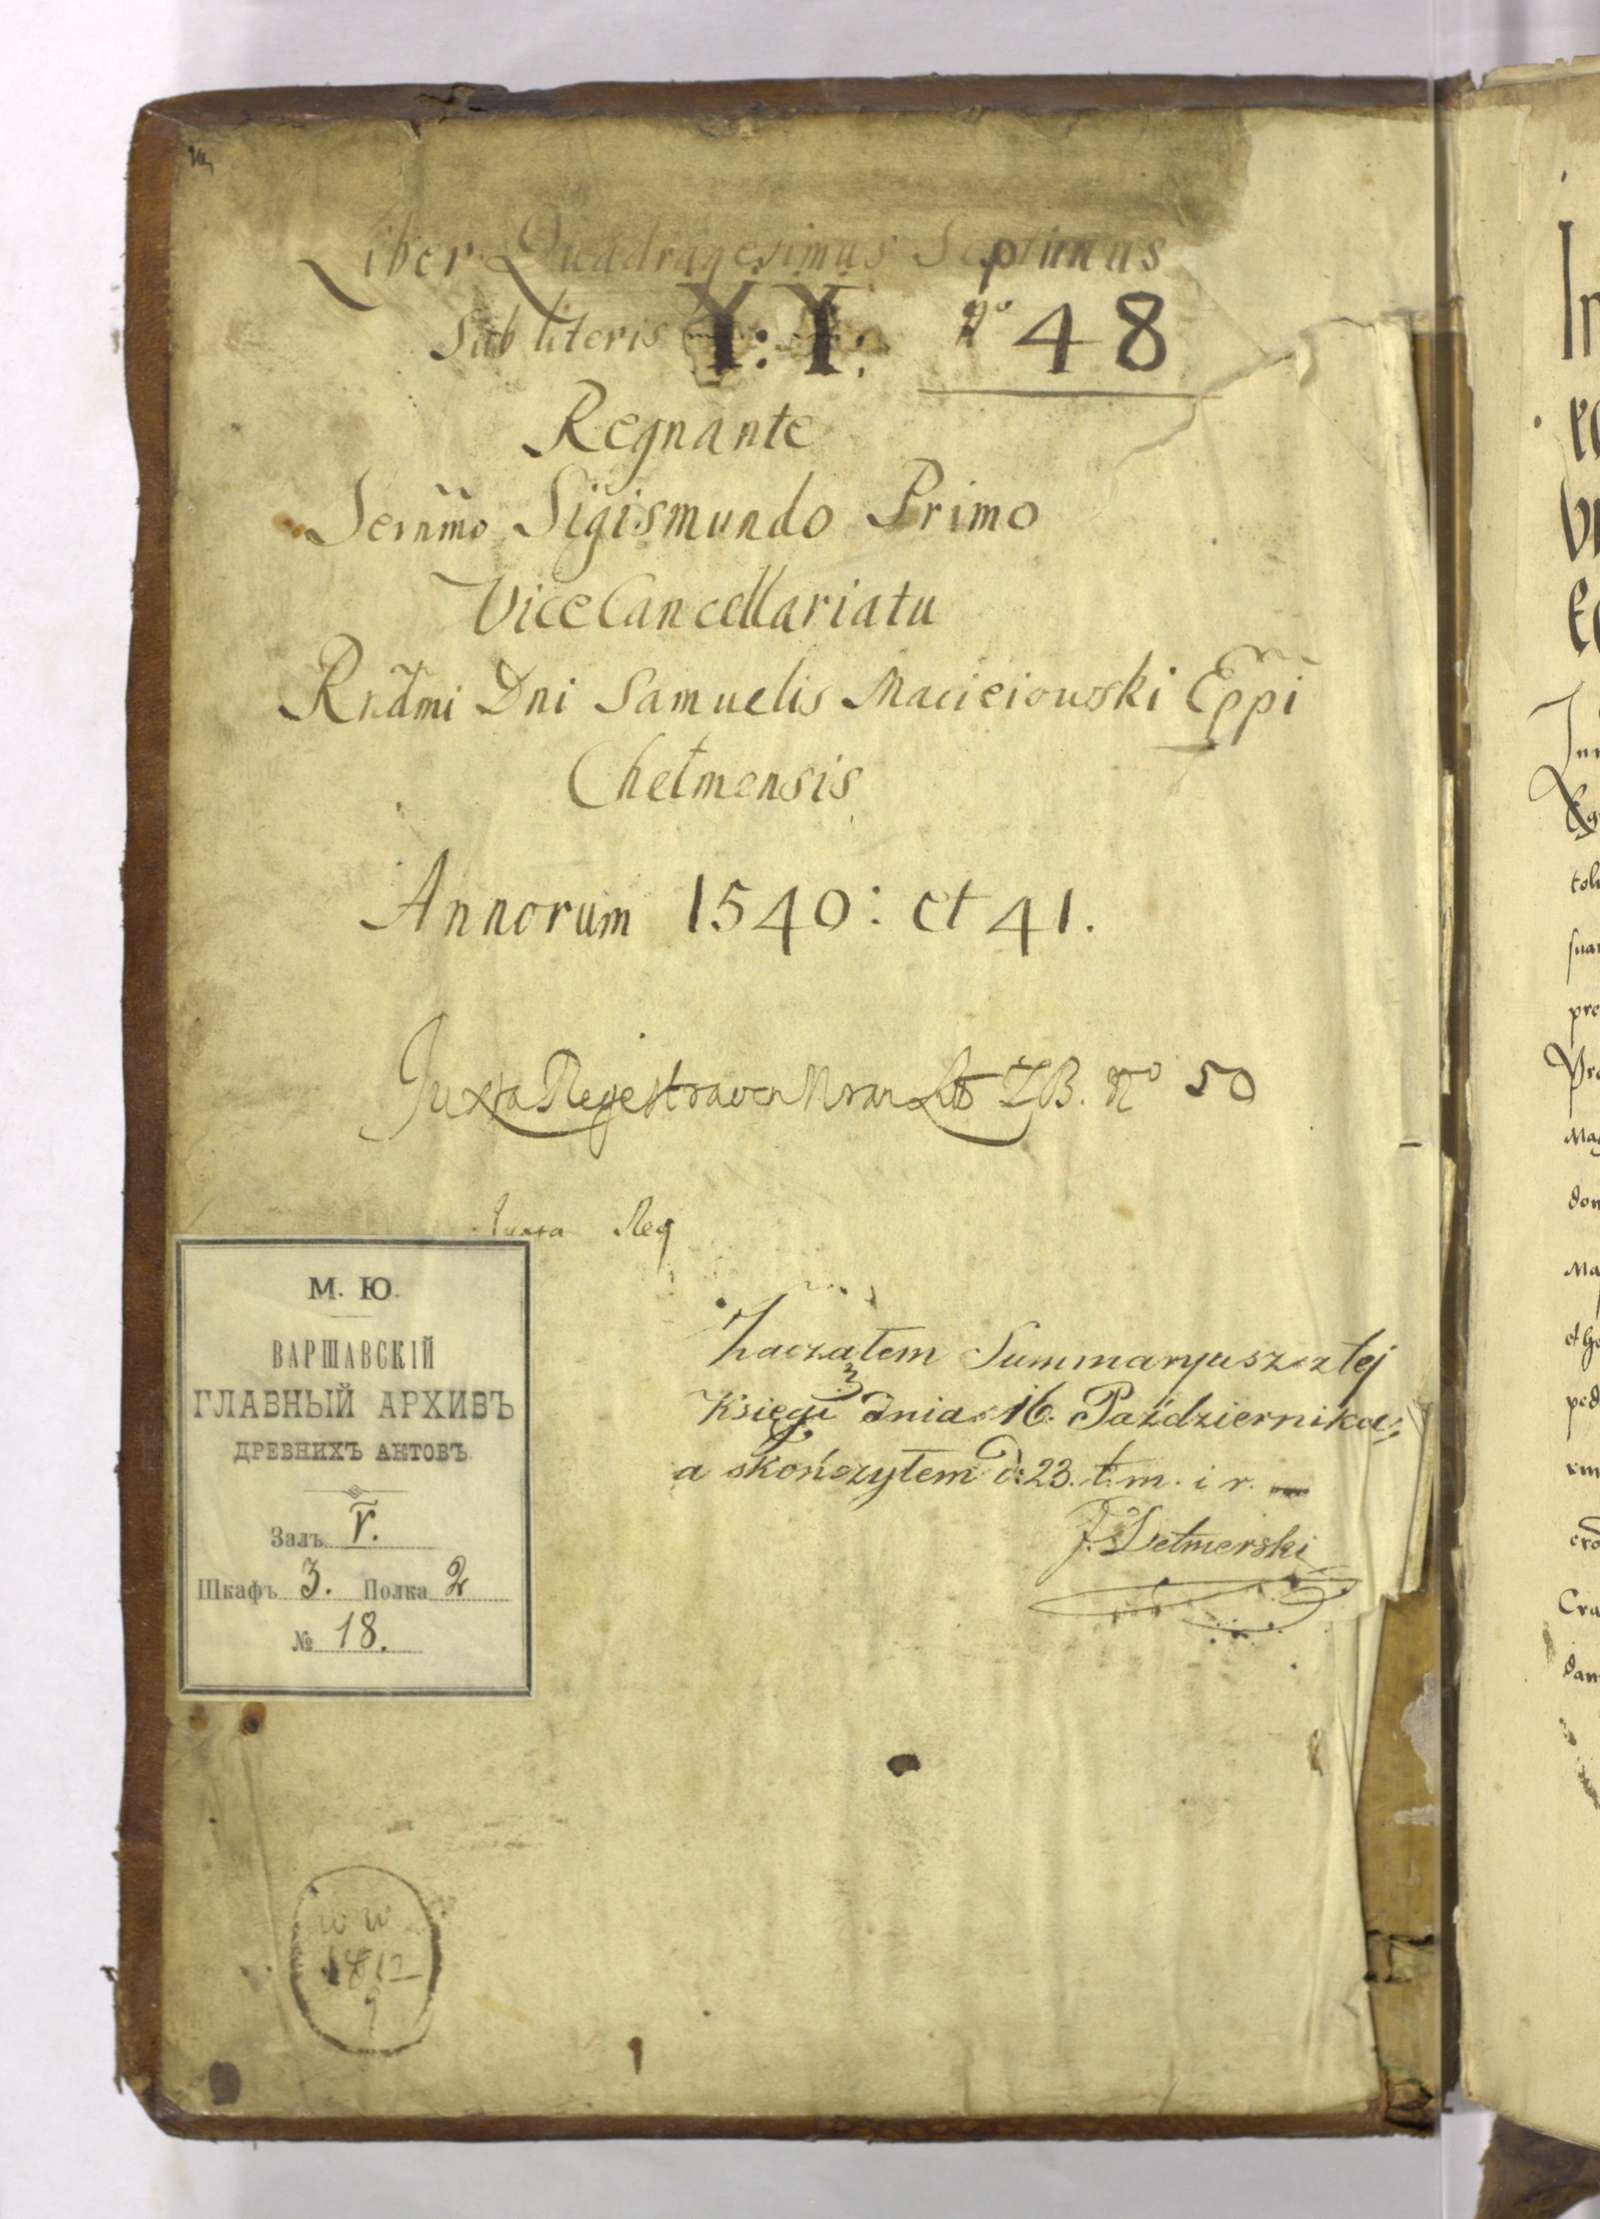 Liber Quadragesimus Septimus
Sub literis Y: Y: Nº 48
Regnante
Sernmo Sigismundo Primo
ViceCancellariatu
Rndmi Dni Samuelis Macieiowski Eppi
Chełmensis
Annorum 1540: et 41.
Juxta ZB. Nº 50
Juxta Reg
М. Ю.
ВАРШАВСКІЙ
ГЛАВНЫЙ АРХИВЪ
ДРЕВНИХЪ АКТОВЪ
Залъ V.
Шкафъ 3. Полка 2
№ 18.
Zacząłem Summaryusz z tej
Księgi dnia 16. Października
a skończyłem d: 23. t. m. i r.
1812
In
Cra